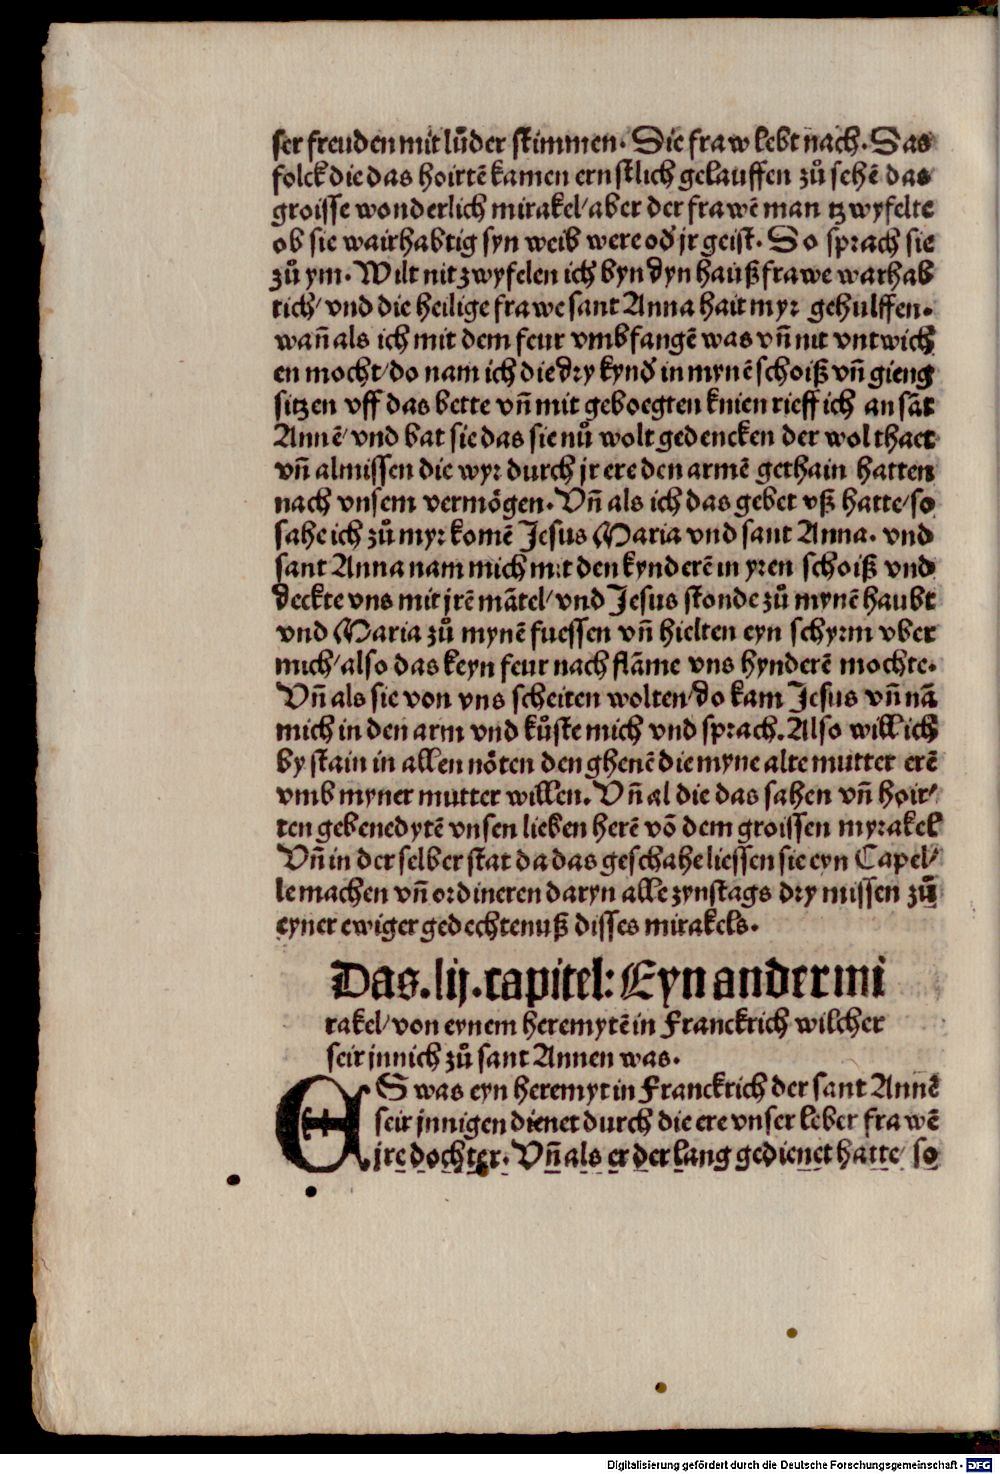 ser freuden mit lůder stimmen. Die fraw lebt nach. Das
folck die das hoirtē kamen ernstlich gelauffen zů sehē das
groisse wonderlich mirakel/ aber der frawē man tzwyfelte
ob sie wairhabtig syn weib were oď jr geist. Do sprach sie
zů ym. Wilt nit zwyfelen ich byn dyn haußfrawe warhab
tich/ vnd die heilige frawe sant Anna hait myr gehulffen.
wañ als ich mit dem feur vmbfangē was vñ nit vntwich
en mocht/ do nam ich die dry kynď in mynē schoiß vñ gieng
sitzen vff das bette vñ mit geboegten knien rieff ich an sāt
Annē/ vnd bat sie das sie nů wolt gedencken der wolthaet
vñ almissen die wyr durch jr ere den armē gethain hatten
nach vnsem vermögen. Vñ als ich das gebet vß hatte/ so
sahe ich zů myr komē Jesus Maria vnd sant Anna. vnd
sant Anna nam mich mit den kynderē in yren schoiß vnd
deckte vns mit jrē mātel/ vnd Jesus stonde zů mynē haubt
vnd Maria zů mynē fuessen vñ hielten eyn schyrm vber
mich/ also das keyn feur nach flāme vns hynderē mochte.
Vñ als sie von vns scheiten wolten/ do kam Jesus vñ nā
mich in den arm vnd kůste mich vnd sprach. Also will ich
by stain in allen nöten den ghenē die myne alte mutter erē
vmb myner mutter willen. Vñ al die das sahen vñ hoir/
ten gebenedytē vnsen lieben herē vō dem groissen myrakel
Vñ in der selber stat da das geschahe liessen sie eyn Capel/
le machen vñ ordineren daryn alle zynstags dry missen zů
eyner ewiger gedechtenuß disses mirakels.
Das.lij.capitel: Eyn ander mi
rakel/ von eynem heremytē in Franckrich wilcher
seir jnnich zů sant Annen was.
ES was eyn heremyt in Franckrich der sant Annē
seir jnnigen dienet durch die ere vnser leber frawē
jre dochter. Vñ als er der lang gedienet hatte/ so
Digitalisierung gefördert durch die Deutsche Forschungsgemeinschaft - DFG